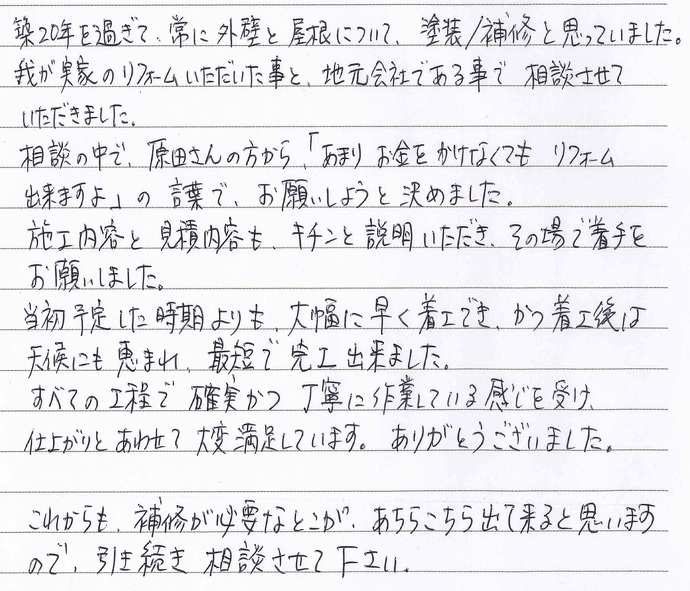 築20年を過ぎて、常に外壁と屋根について、塗装/補修と思っていました。
我が実家のリフォームいただいた事と、地元会社である事で 相談させて
いただきました。
相談の中で、原田さんの方から、「あまり お金をかけなくても リフォーム
出来ますよ」の 言葉で、お願いしようと決めました。
施工内容と見積内容も、キチンと説明いただき、その場で着手を
お願いしました。
当初予定した時期よりも、大幅に早く着工でき、かつ着工後は
天候にも恵まれ、最短で完工出来ました。
すべての工程で 確実かつ丁寧に作業している感じを受け、
仕上がりとあわせて 大変満足しています。ありがとうございました。
これからも、補修が必要なとこが、あちらこちら出て来ると思います
ので、引き続き 相談させて下さい。